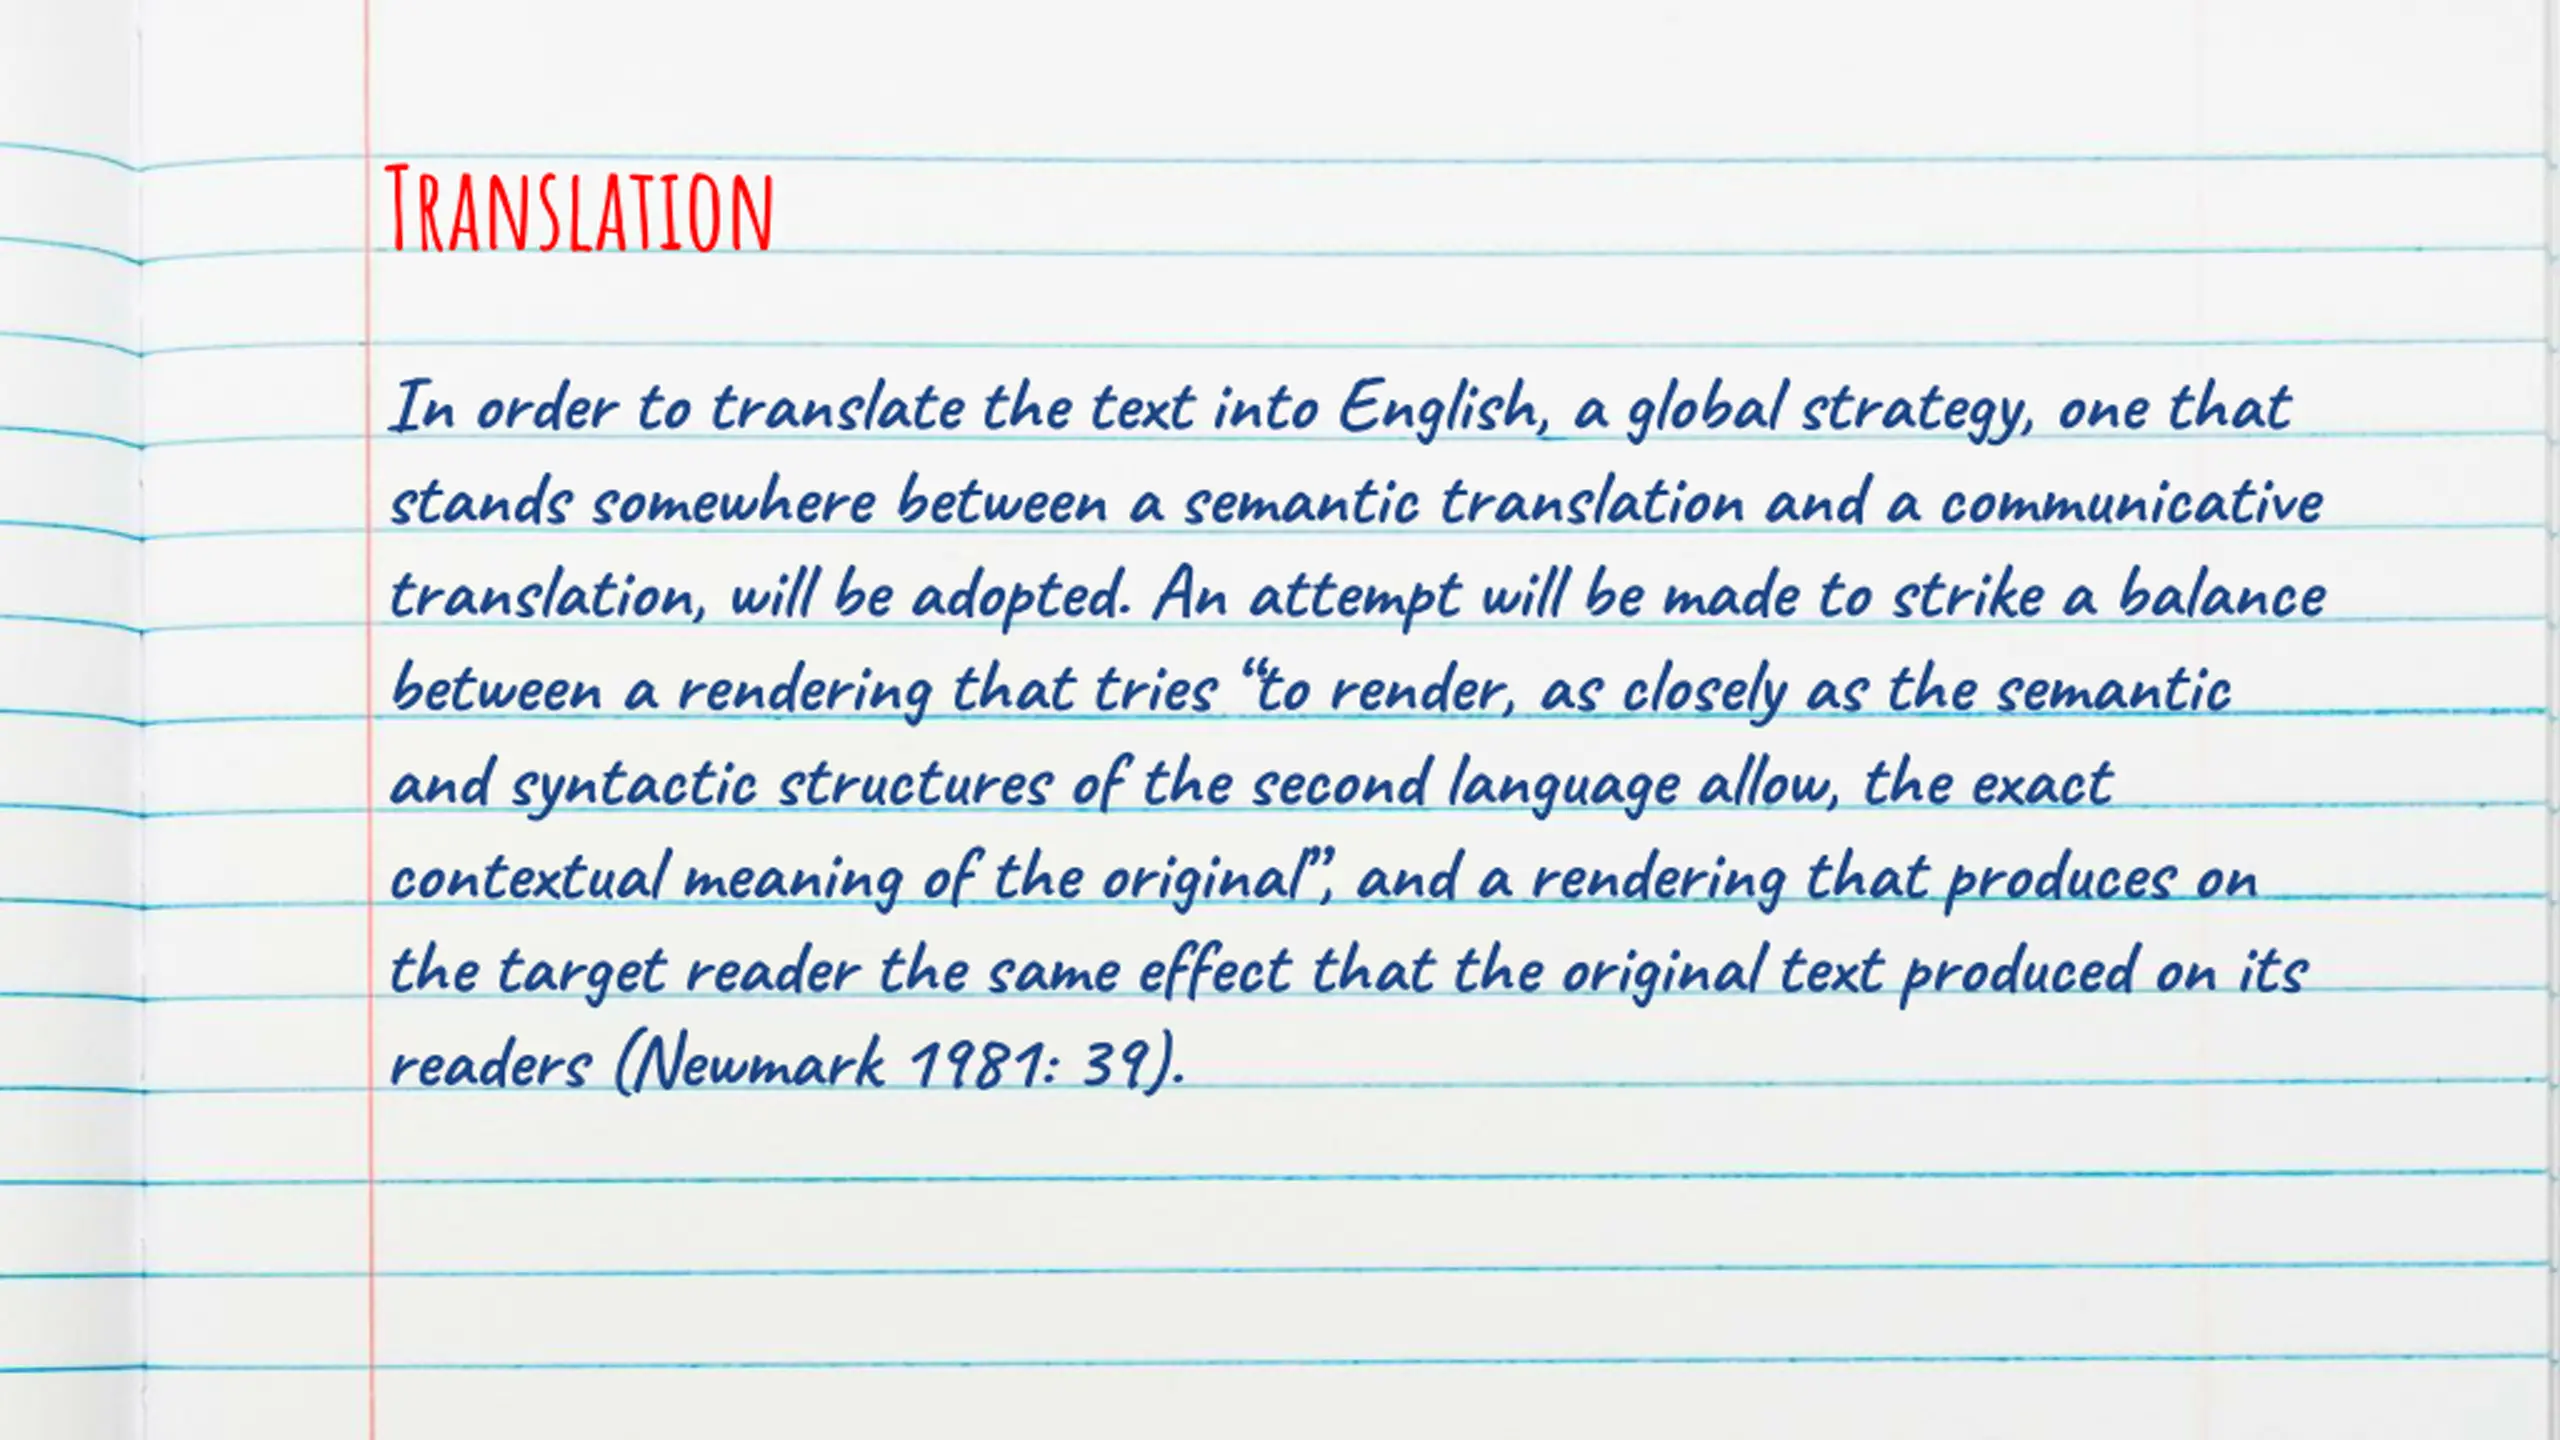 Translation
In order to translate the text into English, a global strategy, one that
stands somewhere between a semantic translation and a communicative
translation, will be adopted. An attempt will be made to strike a balance
between a rendering that tries “to render, as closely as the semantic
and syntactic structures of the second language allow, the exact
contextual meaning of the original”, and a rendering that produces on
the target reader the same effect that the original text produced on its
readers (Newmark 1981: 39).